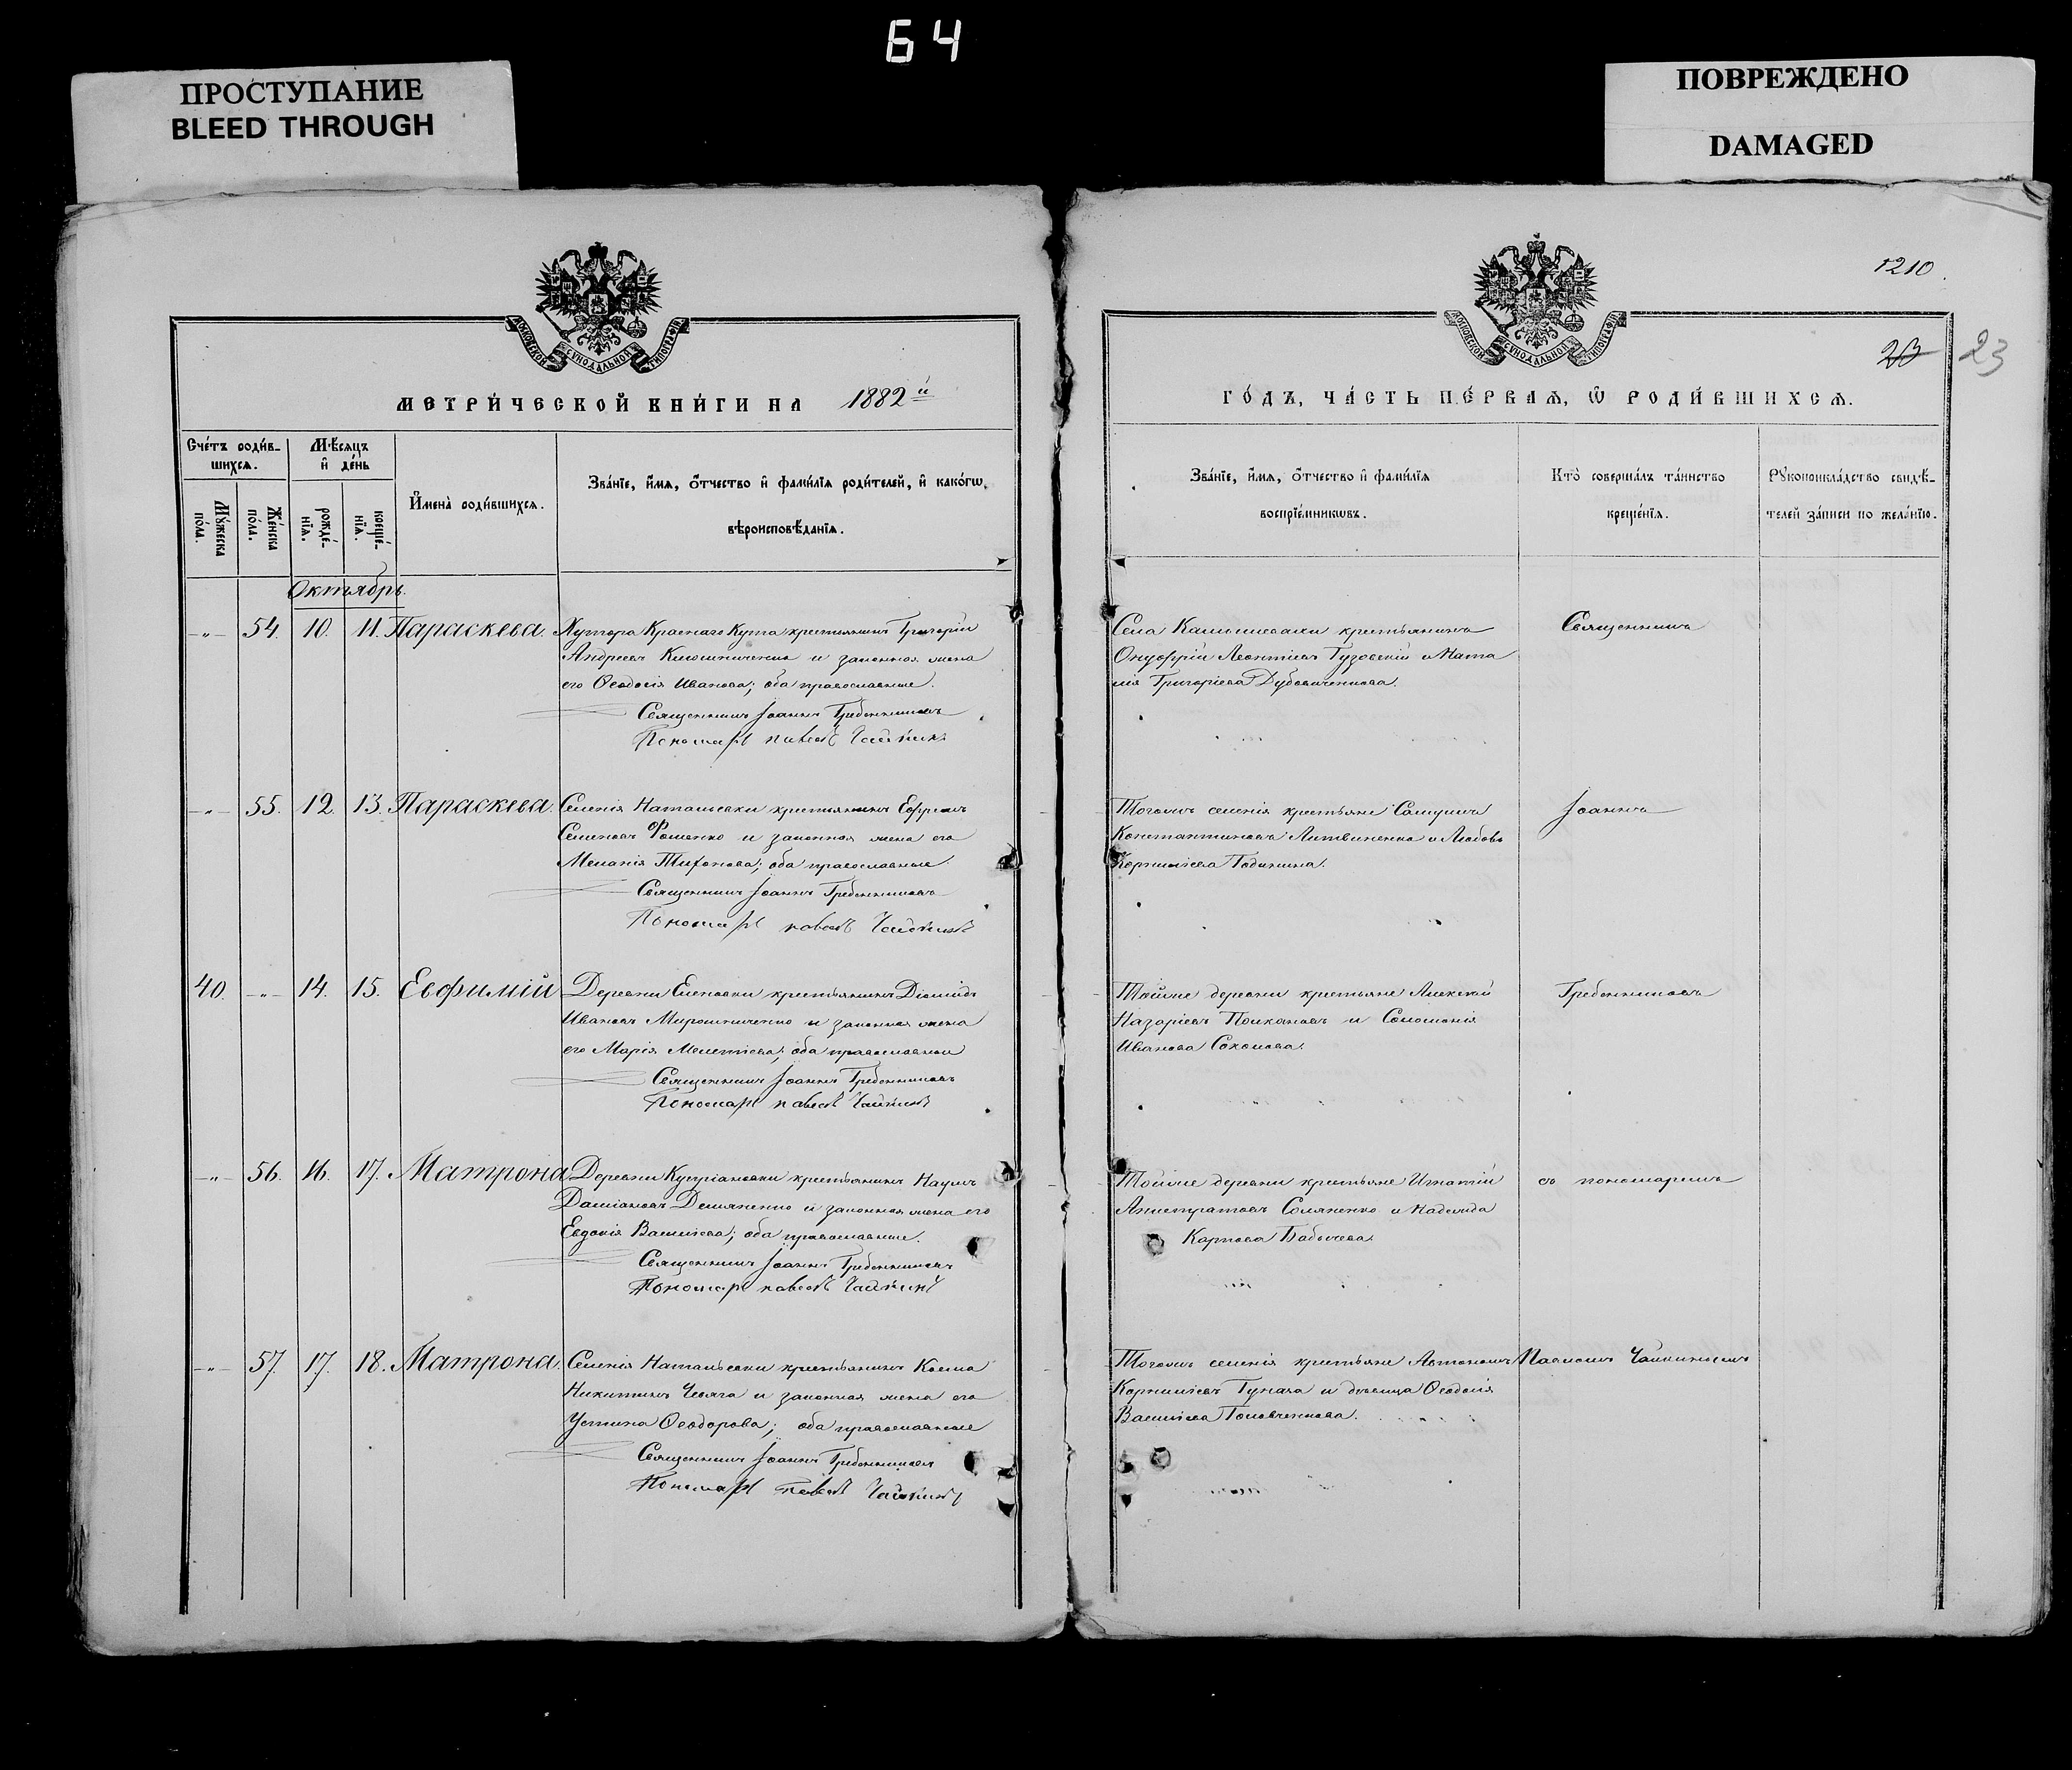 64
ПРОСТУПАНИЕ
BLEED THROUGH
ПОВРЕЖДЕНО
DAMAGED
МОСКОВСКОЙ СѴНОДАЛЬНОЙ ТИПОГРАФІИ
МОСКОВСКОЙ СѴНОДАЛЬНОЙ ТИПОГРАФІИ
1210
23
23
МЕТРИ́ЧЕСКОЙ КНИ́ГИ НА 1882й
ГО́ДЪ, ЧА́СТЬ ПЕ́РВАѦ, Ѿ РОДИ́ВШИХСѦ.
Сче́тъ роди́в-
шихсѧ.
Мѣ́сѧцъ
и҆ де́нь
Мꙋ́жеска
по́ла.
Же́нска
по́ла.
рожде́-
нїѧ.
креще́-
нїѧ.
И҆мена̀ роди́вшихсѧ.
Зва́нїе, и҆́мѧ, о҆́тчество и҆ фами́лїѧ роди́телей, и҆ како́гѡ
вѣроисповѣ́данїѧ.
Зва́нїе, и҆́мѧ, о҆́тчество и҆ фами́лїѧ
воспрїе́мникѡвъ.
Кто̀ соверша́лъ та́инство
креще́нїѧ.
Рꙋкоприкла́дство свидѣ́-
телей за́писи по жела́нїю.
Октябрь.
-"- 54. 10. 11. Параскева. Хутора Краснаго Кута крестьянинъ Григорій
Андреевъ Клюшниченко и законная жена
его Ѳеодосія Иванова; оба православные.
Священникъ Іоаннъ Гребенниковъ
Пономарь Павелъ Чайкинъ
Села крестьянинъ
Онуфрій Леонтіевъ Гузовскій и Ната
лія Григоріева Дубовиченкова.
Священникъ
-"- 55. 12. 13. Параскева. Селенія Натальевки крестьянинъ Ефремъ
Семеновъ Фоменко и законная жена его
Меланія Тихонова; оба православные.
Священникъ Іоаннъ Гребенниковъ
Пономарь Павелъ Чайкинъ
Тогожъ селенія крестьяне Самуилъ
Константиновъ Литвиненко и Любовь
Корниліева Годинина.
Іоаннъ
40. -"- 14. 15. Евфимій Деревни Еленовки крестьянинъ Діомидъ
Ивановъ Мирошниченко и законная жена
его Марія Мелетіева; оба православные
Священникъ Іоаннъ Гребенниковъ
Пономарь Павелъ Чайкинъ
Тойже деревни крестьяне Алексѣй
Назаріевъ Полкановъ и Соломонія
Иванова Соколова.
Гребенниковъ
-"- 56. 16. 17. Матрона Деревни Купріановки крестьянинъ Наумъ
Даміановъ Демяненко и законная жена его
Евдокія Василіева; оба православные.
Священникъ Іоаннъ Гребенниковъ
Пономарь Павелъ Чайкинъ
Тойже деревни крестьяне Игнатій
Калистратовъ Соляненко и Надежда
Карпова Бабичева.
съ пономаремъ
-"- 57. 17. 18. Матрона. Селенія Натальевки крестьянинъ Косма
Никитинъ Чевяга и законная жена его
Устина Ѳеодорова; оба православные
Священникъ Іоаннъ Гребенниковъ
Пономарь Павелъ Чайкинъ
Тогожъ селенія крестьяне Автономъ
Корниліевъ Гунага и дѣвица Ѳеодосія
Василіева Головченкова.
Павломъ Чайкинымъ